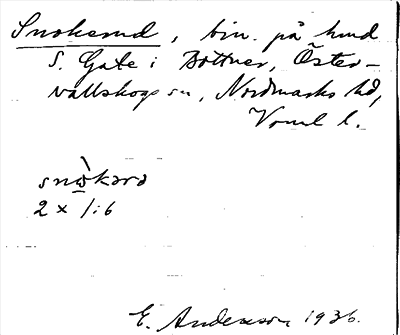 Snokerud, bin. på hmd
S. Gate i Bottner, Öster-
vallskogs sn, Nordmarks hd,
Vrml l.
snò̱kərə
2 x 1:6
E. Anderson 1936.